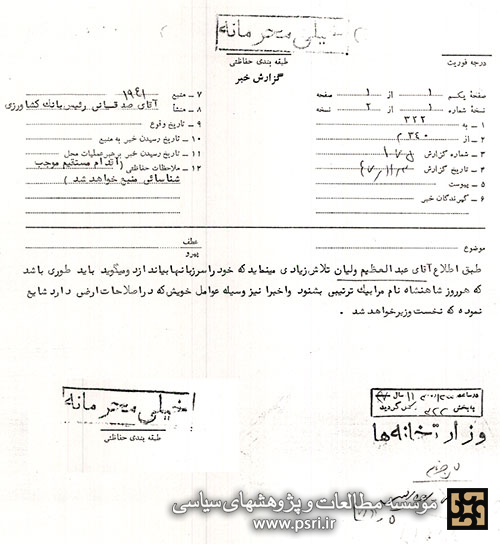 خیلی محرمانه
طبقه بندی حفاظتی
گزارش خبر
درجه فوریت
صفحه یکم ۱ از ۱ صفحه
نسخه شماره ۱ از ۲ نسخه
۱ ـ به ۳۲۲
۲ ـ از ۳۴۰ م
۳ ـ شماره گزارش
۴ ـ تاریخ گزارش
۵ ـ پیوست
۶ ـ گیرندگان خبر
۷ ـ منبع ۱۹۴۱
۸ ـ منشأ آقای صدقیانی رئیس بانک کشاورزی
۹ ـ تاریخ وقوع
۱۰ ـ تاریخ رسیدن خبر به منبع
۱۱ ـ تاریخ رسیدن خبر برهبر عملیات محل
۱۲ ـ ملاحظات حفاظتی (اقدام مستقیم موجب
شناسائی منبع خواهد شد)
موضوع
عطف
پیرو
طبق اطلاع آقای عبدالعظیم ولیان تلاش زیادی مینماید که خود را سرزبانها بیاندازد ومیگوید باید طوری باشد
که هرروز شاهنشاه نام مرا بیک ترتیبی بشنود واخیرا نیز وسیله عوامل خویش که دراصلاحات ارضی دارد شایع
نموده که نخست وزیر خواهد شد .
خیلی محرمانه
طبقه بندی حفاظتی
وزارتخانه‌ها
موسسه مطالعات و پژوهشهای سیاسی
www.psri.ir